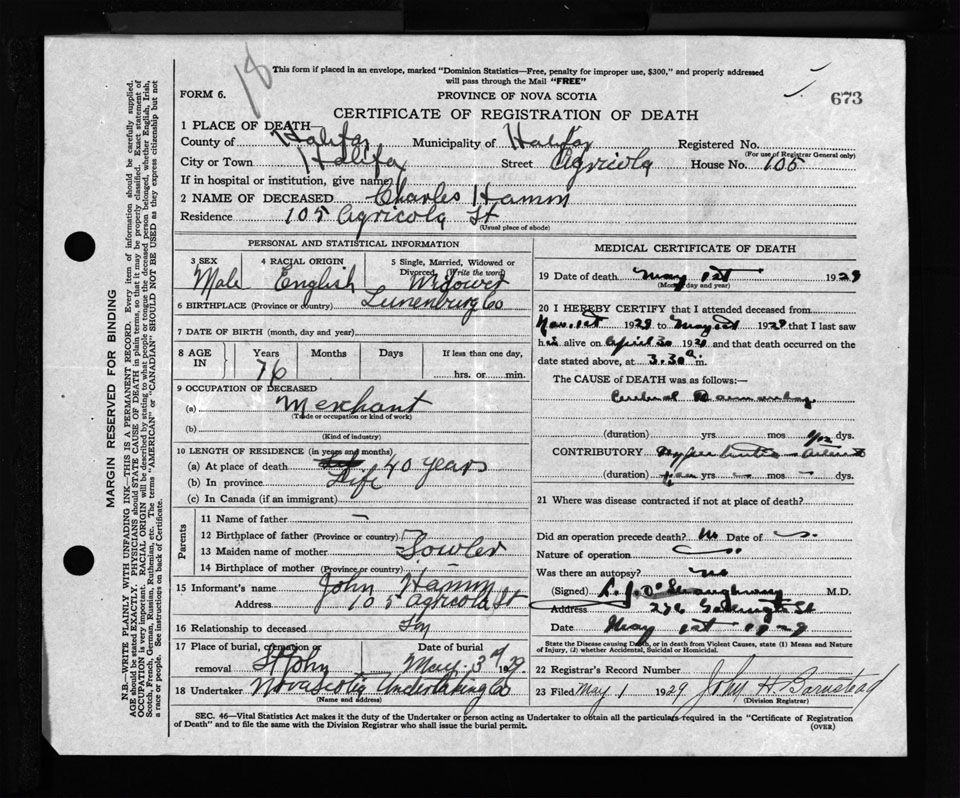 18
This form if placed in an envelope, marked "Dominion Statistics—Free, penalty for improper use, $300," and properly addressed
will pass through the Mail "FREE"
FORM 6.
PROVINCE OF NOVA SCOTIA
673
CERTIFICATE OF REGISTRATION OF DEATH
1 PLACE OF DEATH—
County of Halifax Municipality of Halifax Registered No.
(For use of Registrar General only)
City or Town Halifax Street Agricola House No. 105
If in hospital or institution, give name
2 NAME OF DECEASED Charles Hamm
Residence 105 Agricola St
(Usual place of abode)
PERSONAL AND STATISTICAL INFORMATION
3 SEX 4 RACIAL ORIGIN 5 Single, Married, Widowed or
Divorced (Write the word)
Male English Widower
6 BIRTHPLACE (Province or country) Lunenburg Co
7 DATE OF BIRTH (month, day and year)
8 AGE IN Years Months Days If less than one day,
76 hrs. or min.
9 OCCUPATION OF DECEASED
(a) Merchant
(Trade or occupation or kind of work)
(b)
(Kind of industry)
10 LENGTH OF RESIDENCE (in years and months)
(a) At place of death 40 years
(b) In province Life
(c) In Canada (if an immigrant)
Parents
11 Name of father —
12 Birthplace of father (Province or country)
13 Maiden name of mother
14 Birthplace of mother (Province or country)
15 Informant's name John Hamm
Address 105 Agricola St
16 Relationship to deceased
17 Place of burial, cremation or removal St John
Date of burial May 3rd 1929
18 Undertaker Nova Scotia Undertaking Co
(Name and address)
MEDICAL CERTIFICATE OF DEATH
19 Date of death May 1st 1929
(Month, day and year)
20 I HEREBY CERTIFY that I attended deceased from
1928 to May 1st 1929 that I last saw
him alive on April 30 1929 and that death occurred on the
date stated above, at 3.30 a m.
The CAUSE OF DEATH was as follows:—
Cerebral
(duration) yrs. mos. dys.
CONTRIBUTORY
(duration) yrs. mos. dys.
21 Where was disease contracted if not at place of death?
Did an operation precede death? No Date of
Nature of operation
Was there an autopsy? no
(Signed) M.D.
Address St
Date May 1st 1929
State the Disease causing Death, or in death from Violent Causes, state (1) Means and Nature
of Injury, (2) whether Accidental, Suicidal or Homicidal.
22 Registrar's Record Number
23 Filed May 1 1929 John H Barnstead
(Division Registrar)
SEC. 46—Vital Statistics Act makes it the duty of the Undertaker or person acting as Undertaker to obtain all the particulars required in the "Certificate of Registration
of Death" and to file the same with the Division Registrar who shall issue the burial permit.
(OVER)
MARGIN RESERVED FOR BINDING
N.B.—WRITE PLAINLY WITH UNFADING INK—THIS IS A PERMANENT RECORD. Every item of information should be carefully supplied.
AGE should be stated EXACTLY. PHYSICIANS should STATE CAUSE OF DEATH in plain terms, so that it may be properly classified. Exact statement of
OCCUPATION is very important. RACIAL ORIGIN will be described by stating to what people or tongue the deceased person belonged, whether English, Irish,
Scotch, French, German, Russian, Ruthenian, etc. The terms "AMERICAN" or "CANADIAN" SHOULD NOT BE USED as they express citizenship but not
a race or people. See instructions on back of Certificate.